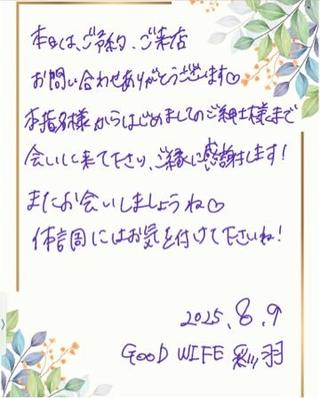 本日は、ご予約、ご来店
お問い合わせありがとうございます♡
本指名様からはじめましてのご紳士様まで
会いに来て下さり、ご縁に感謝します！
またお会いしましょうね♡
体調にはお気を付けて下さいね！
2025.8.9
GOOD WIFE 羽